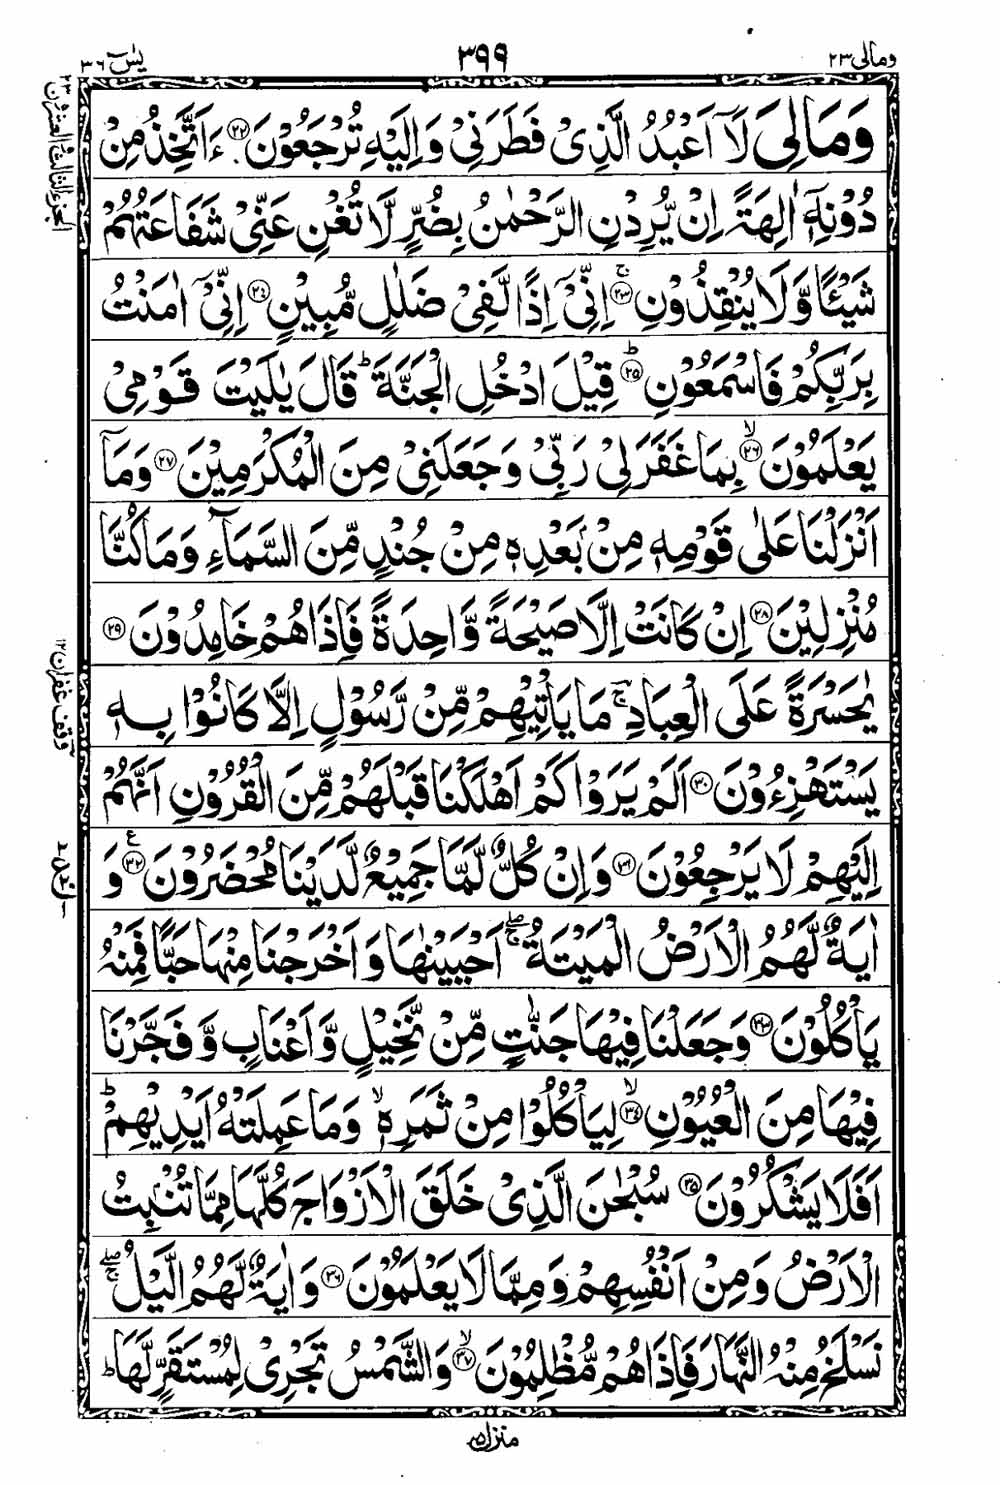 ومالی۲۳ ۳۹۹ یٰسٓ ۳۶
وَمَا لِىَ لَآ اَعْبُدُ الَّذِىْ فَطَرَنِىْ وَاِلَيْهِ تُرْجَعُوْنَ ۝۲۲ ءَاَتَّخِذُ مِنْ
دُوْنِهٖٓ اٰلِهَةً اِنْ يُّرِدْنِ الرَّحْمٰنُ بِضُرٍّ لَّا تُغْنِ عَنِّىْ شَفَاعَتُهُمْ
شَيْئًا وَّلَا يُنْقِذُوْنِ ۝۲۳ۚ اِنِّىْٓ اِذًا لَّفِىْ ضَلٰلٍ مُّبِيْنٍ ۝۲۴ اِنِّىْٓ اٰمَنْتُ
بِرَبِّكُمْ فَاسْمَعُوْنِ ۝۲۵ؕ قِيْلَ ادْخُلِ الْجَنَّةَ ؕ قَالَ يٰلَيْتَ قَوْمِىْ
يَعْلَمُوْنَ ۝۲۶ۙ بِمَا غَفَرَ لِىْ رَبِّىْ وَجَعَلَنِىْ مِنَ الْمُكْرَمِيْنَ ۝۲۷ وَمَآ
اَنْزَلْنَا عَلٰى قَوْمِهٖ مِنْ بَعْدِهٖ مِنْ جُنْدٍ مِّنَ السَّمَآءِ وَمَا كُنَّا
مُنْزِلِيْنَ ۝۲۸ اِنْ كَانَتْ اِلَّا صَيْحَةً وَّاحِدَةً فَاِذَا هُمْ خَامِدُوْنَ ۝۲۹
يٰحَسْرَةً عَلَى الْعِبَادِ ۚ مَا يَاْتِيْهِمْ مِّنْ رَّسُوْلٍ اِلَّا كَانُوْا بِهٖ
يَسْتَهْزِءُوْنَ ۝۳۰ اَلَمْ يَرَوْا كَمْ اَهْلَكْنَا قَبْلَهُمْ مِّنَ الْقُرُوْنِ اَنَّهُمْ
اِلَيْهِمْ لَا يَرْجِعُوْنَ ۝۳۱ وَاِنْ كُلٌّ لَّمَّا جَمِيْعٌ لَّدَيْنَا مُحْضَرُوْنَ ۝۳۲ وَ
اٰيَةٌ لَّهُمُ الْاَرْضُ الْمَيْتَةُ ۖۚ اَحْيَيْنٰهَا وَاَخْرَجْنَا مِنْهَا حَبًّا فَمِنْهُ
يَاْكُلُوْنَ ۝۳۳ وَجَعَلْنَا فِيْهَا جَنّٰتٍ مِّنْ نَّخِيْلٍ وَّاَعْنَابٍ وَّفَجَّرْنَا
فِيْهَا مِنَ الْعُيُوْنِ ۝۳۴ۙ لِيَاْكُلُوْا مِنْ ثَمَرِهٖ ۙ وَمَا عَمِلَتْهُ اَيْدِيْهِمْ ؕ
اَفَلَا يَشْكُرُوْنَ ۝۳۵ سُبْحٰنَ الَّذِىْ خَلَقَ الْاَزْوَاجَ كُلَّهَا مِمَّا تُنْۢبِتُ
الْاَرْضُ وَمِنْ اَنْفُسِهِمْ وَمِمَّا لَا يَعْلَمُوْنَ ۝۳۶ وَاٰيَةٌ لَّهُمُ الَّيْلُ ۖۚ
نَسْلَخُ مِنْهُ النَّهَارَ فَاِذَا هُمْ مُّظْلِمُوْنَ ۝۳۷ۙ وَالشَّمْسُ تَجْرِىْ لِمُسْتَقَرٍّ لَّهَا ؕ
الجزءالثالث والعشرون ۲۳
وقف غفران ۱۲
منزل۵